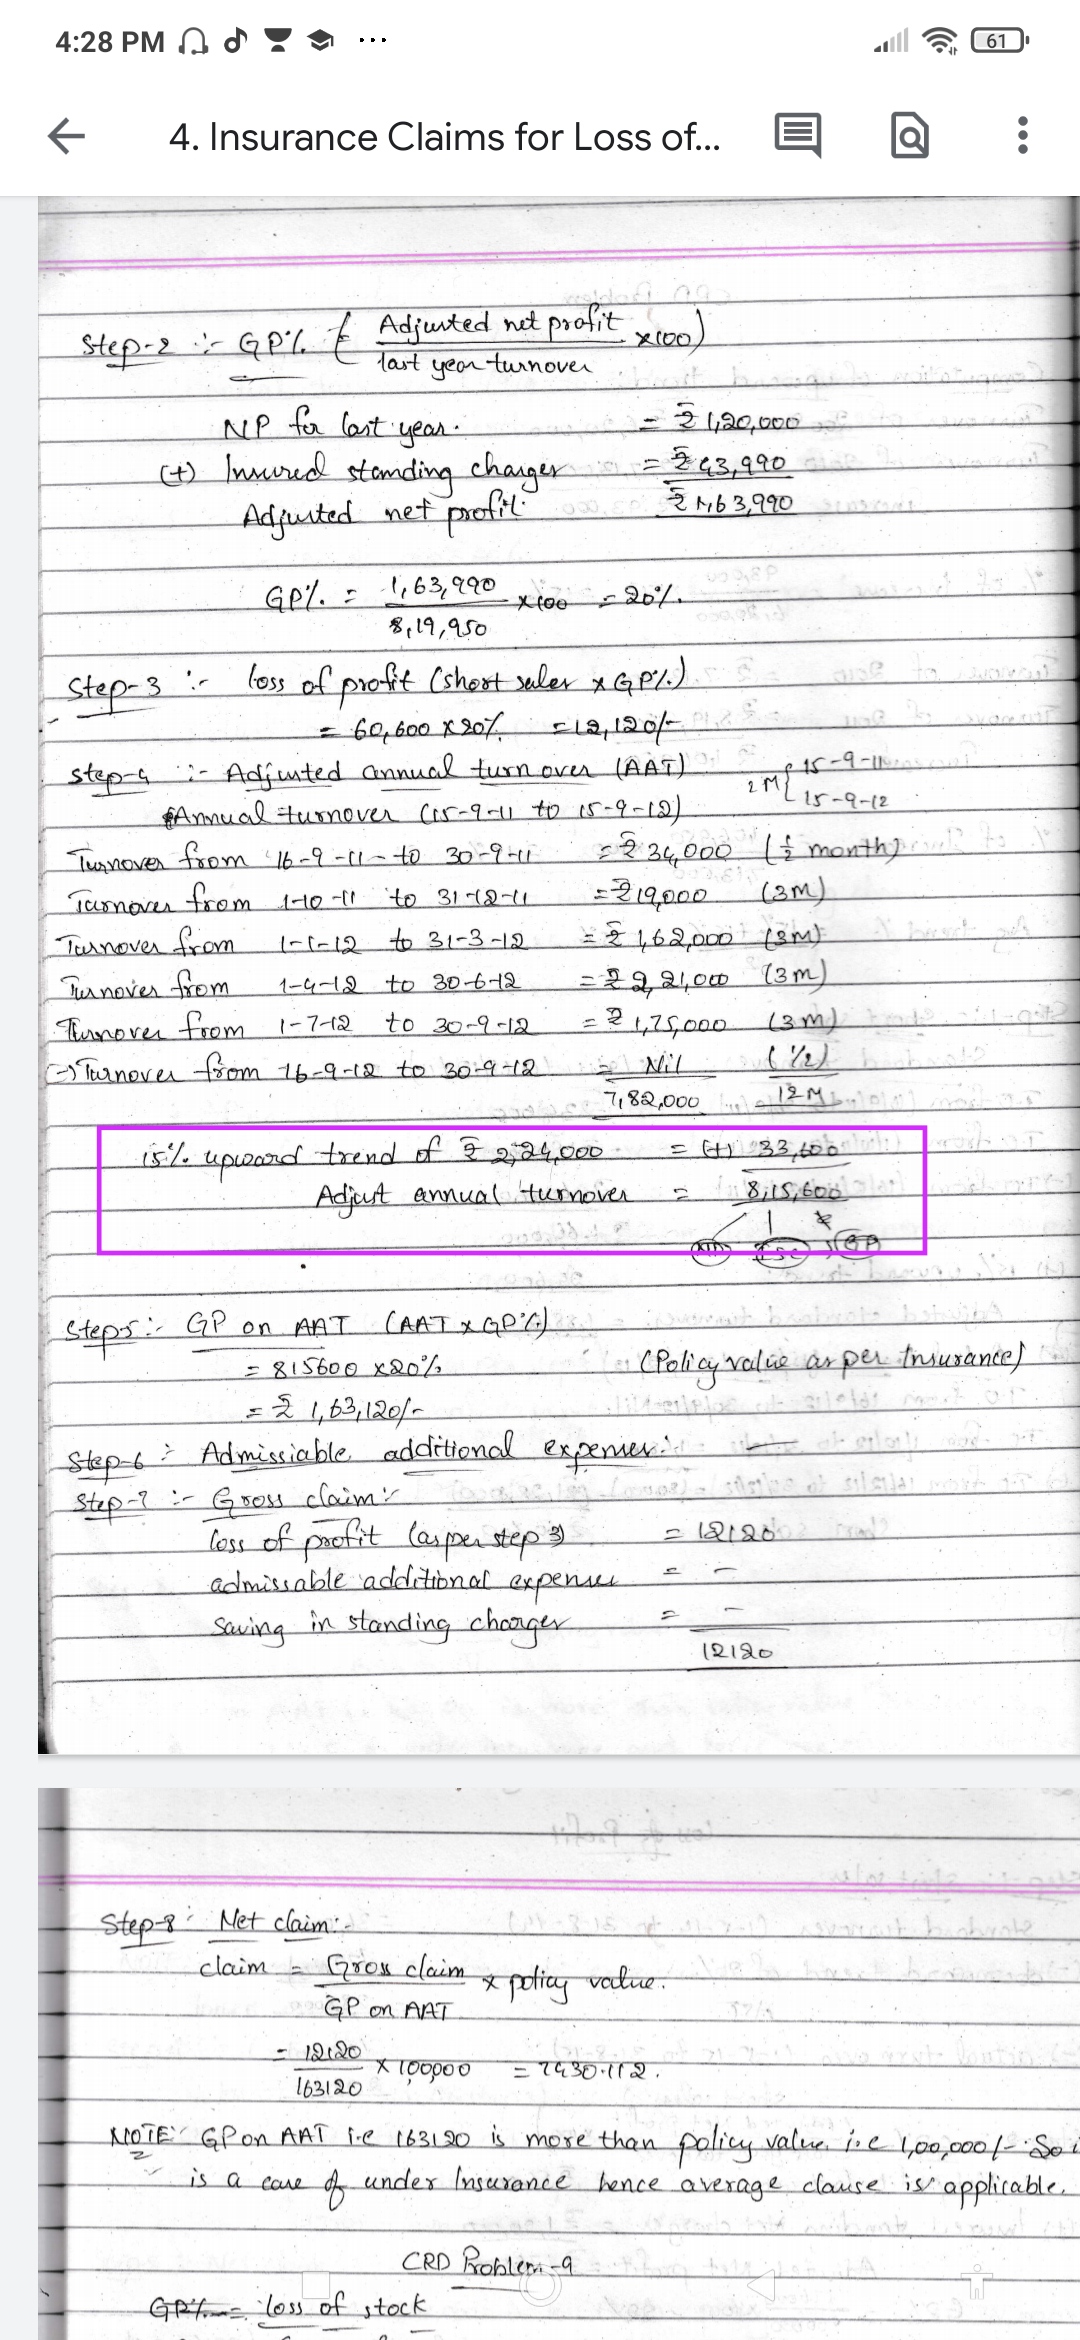 4:28 PM
61
4. Insurance Claims for Loss of...
Step-2 :- GP% ( Adjusted net profit / last year turnover x100)
NP for last year. = ₹ 1,20,000
(+) Insured standing charges = ₹ 43,990
Adjusted net profit. ₹ 1,63,990
GP%. = 1,63,990 / 8,19,950 x100 = 20%.
Step-3 :- loss of profit (short sales x GP%.)
= 60,600 x 20%. = 12,120/-
Step-4 :- Adjusted annual turn over (AAT) 2M { 15-9-11
Annual turnover (15-9-11 to 15-9-12) 15-9-12
Turnover from 16-9-11 - to 30-9-11 = ₹ 34,000 (½ month)
Turnover from 1-10-11 to 31-12-11 = ₹ 19,000 (3M)
Turnover from 1-1-12 to 31-3-12 = ₹ 1,62,000 (3M)
Turnover from 1-4-12 to 30-6-12 = ₹ 2,21,000 (3M)
Turnover from 1-7-12 to 30-9-12 = ₹ 1,75,000 (3M)
(-) Turnover from 16-9-12 to 30-9-12 = Nil (½)
7,82,000 12M
15%. upward trend of ₹ 2,24,000 = (+) 33,600
Adjust annual turnover = 8,15,600
Step5:- GP on AAT (AAT x GP%)
= 815600 x20% (Policy value as per Insurance)
= ₹ 1,63,120/-
Step-6 :- Admissiable additional expenses: —
Step-7 :- Gross claim:-
loss of profit (as per step 3) = 12120
admissable additional expenses = -
Saving in standing charges = -
12120
Step-8: Net claim:-
claim = Gross claim / GP on AAT x policy value.
= 12120 / 163120 x 100000 = 7430.112.
NOTE: GP on AAT i.e 163120 is more than policy value i.e 1,00,000/- So i
is a case of under Insurance hence average clause is applicable.
CRD Problem-9
GP% = loss of stock